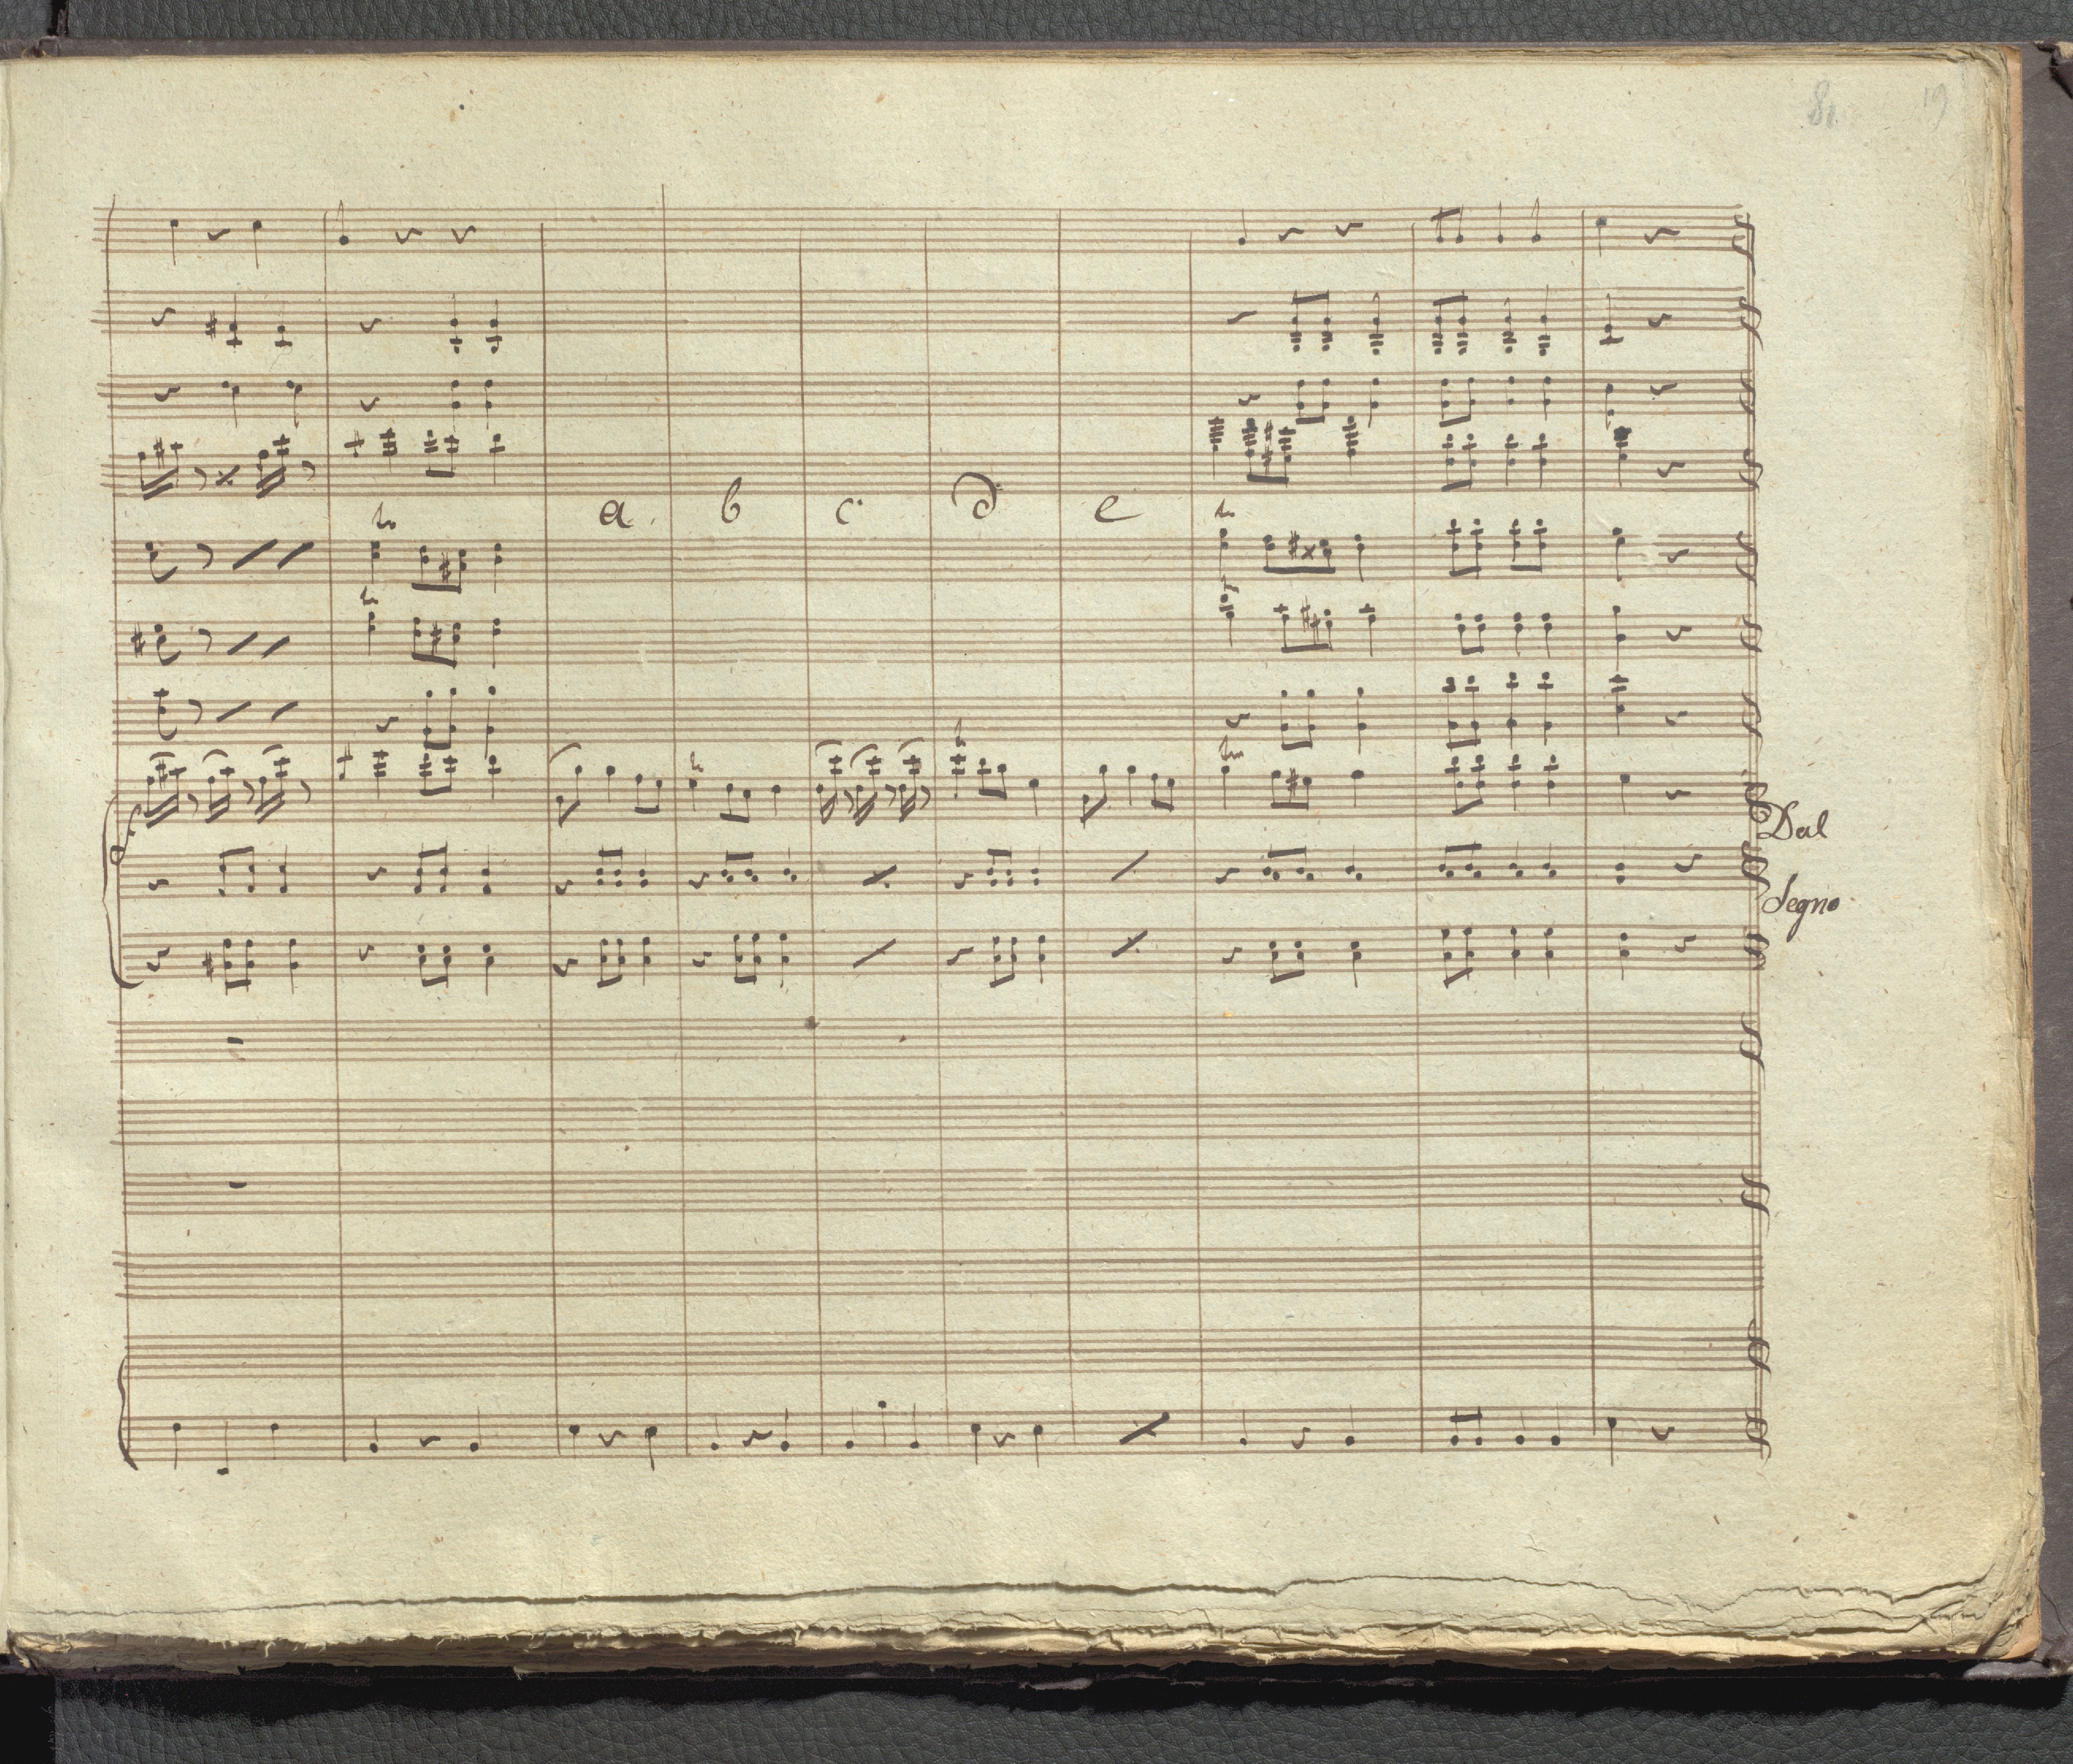 19
a. b c. d e
Dal
Segno